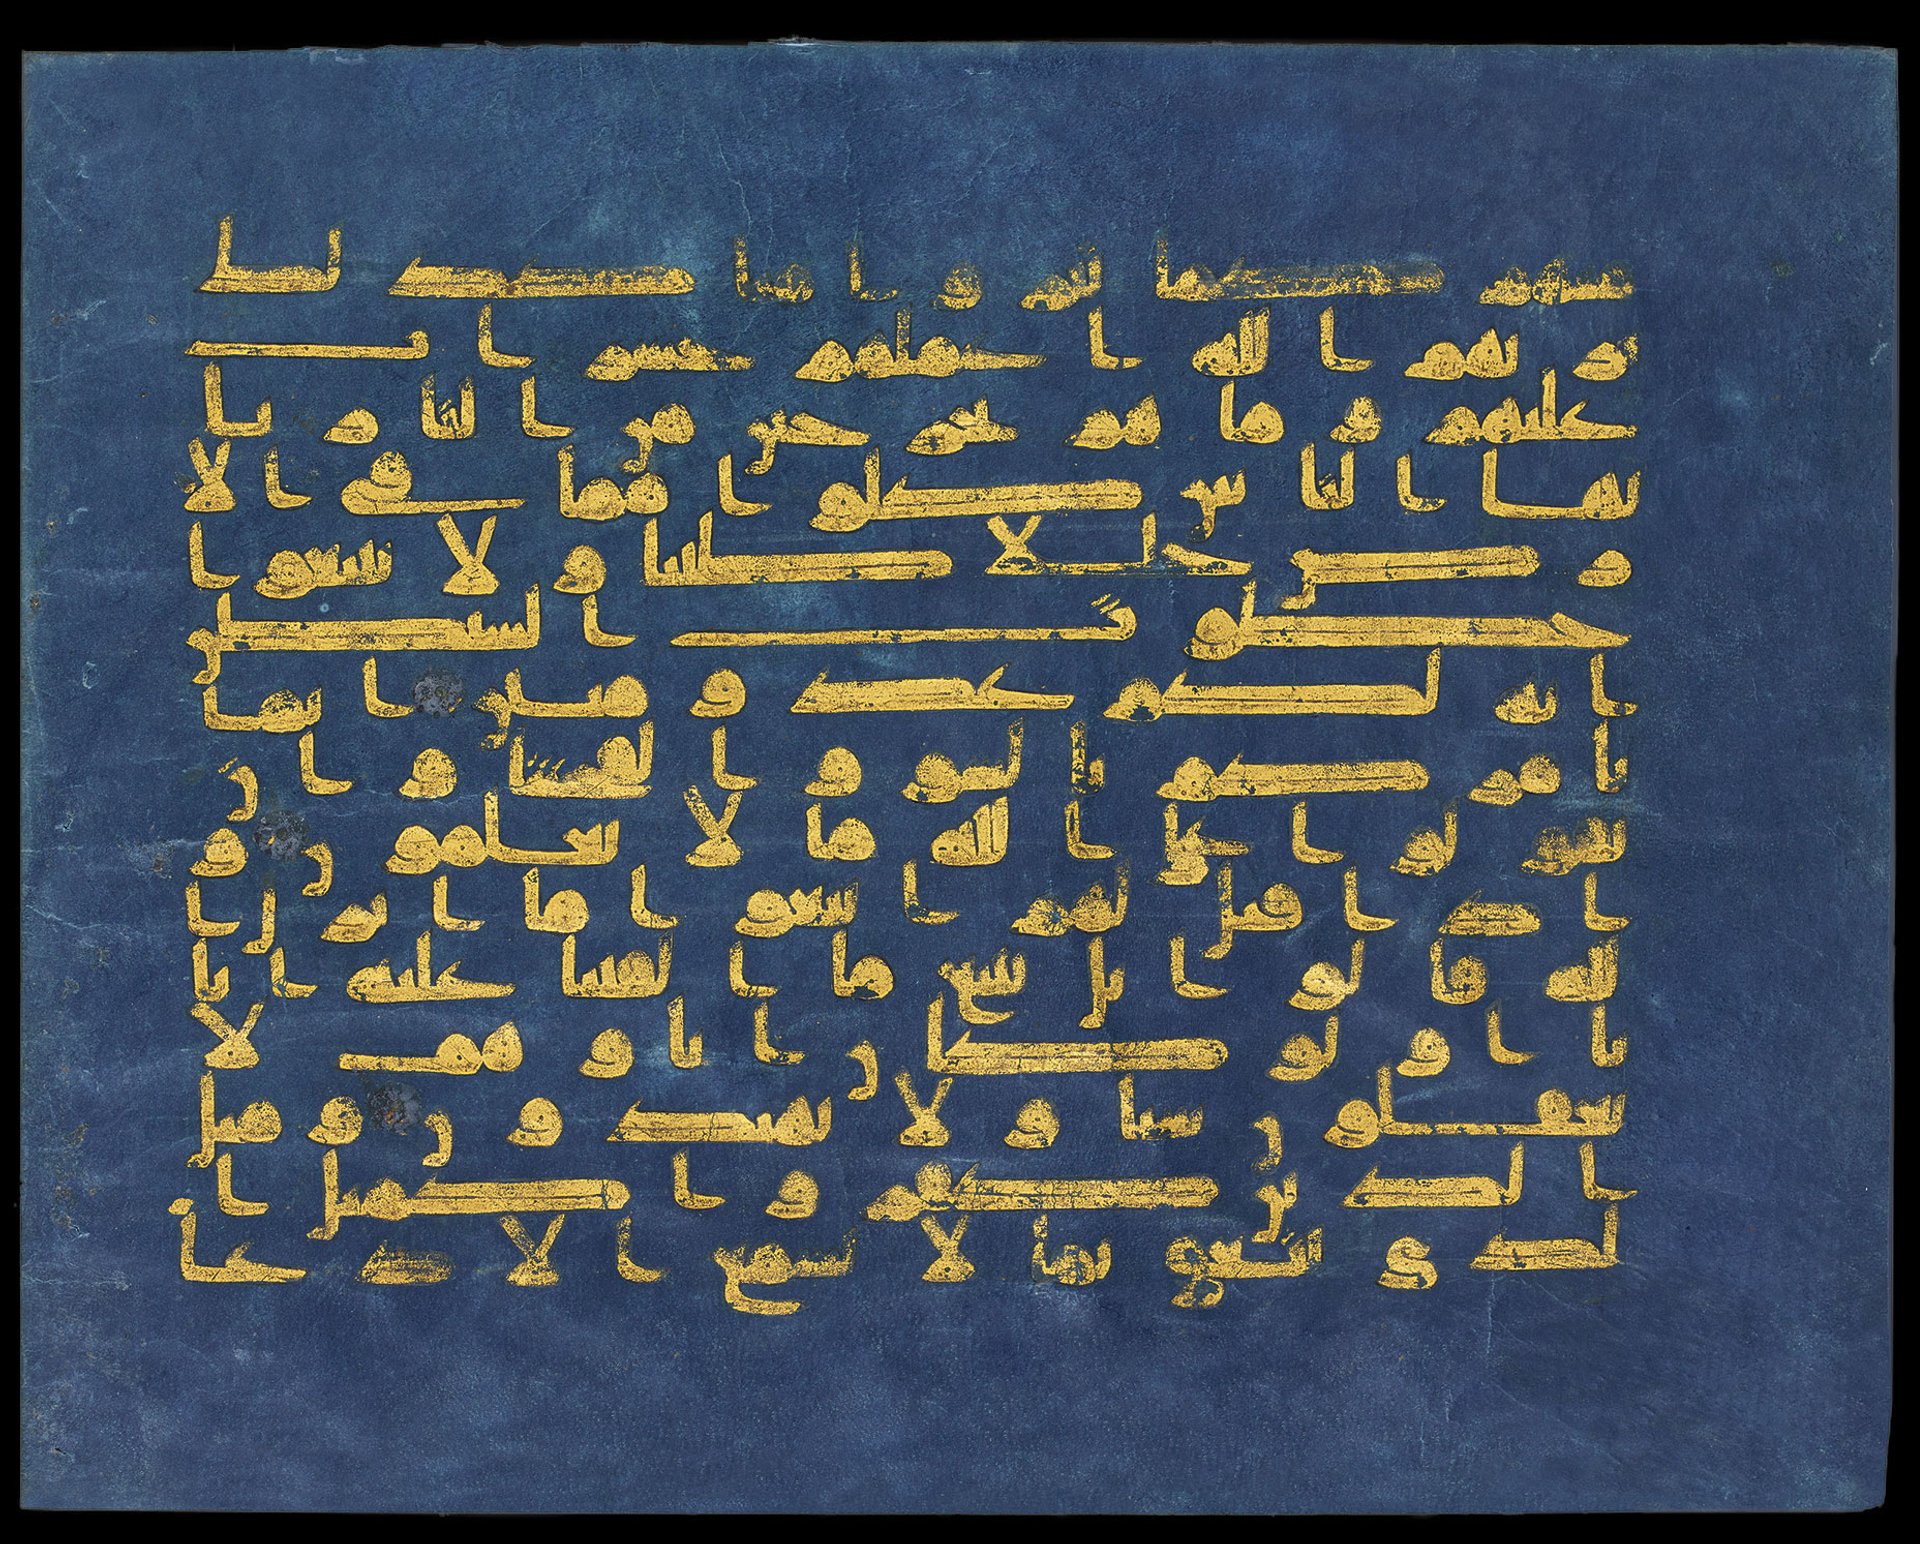 منهم كما تبروا منا كذلك
يريهم الله اعملهم حسرات
عليهم وما هم بخرجين من النار يا
يها الناس كلوا مما في الا
رض حللا طيبا ولا تتبعوا
خطوت الشيطن
انه لكم عدو مبين انما
يامركم بالسو والفحشا وان
تقولوا على الله ما لا تعلمون و
اذا قيل لهم اتبعوا ما انزل ا
لله قالوا بل نتبع ما الفينا عليه ابا
نا اولو كان اباوهم لا
يعقلون شيا ولا يهتدون ومثل
الذين كفروا كمثل ا
لذي ينعق بما لا يسمع الا دعا